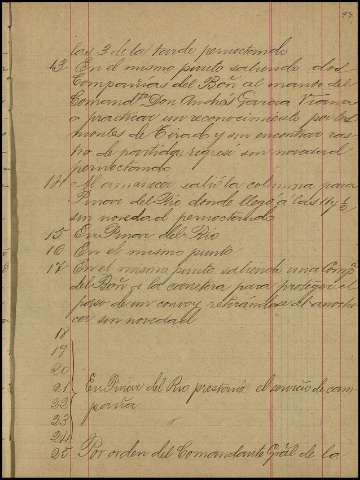 las 3 de la tarde pernoctando
13 En el mismo punto saliendo dos
Compañias del Bón al mando del
Comandte Don Andrés Garcia Viana
a practicar un reconocimiento por los
montes de Tirado y sin encontrar ras
tro de partida regresó sin novedad
pernoctando
14 Al amanecer salió la columna para
Pinar del Rio donde llegó a las 11 y ½
sin novedad pernoctando
15 En Pinar del Rio
16 En el mismo punto
17 En el mismo punto saliendo una Compª
del Bón a la carretera para proteger el
paso de un convoy, retirándose al anoche
cer sin novedad
18
19
20
21 En Pinar del Rio prestando el servicio de cam
22 paña
23 "
24
25 Por orden del Comandante Gral de la